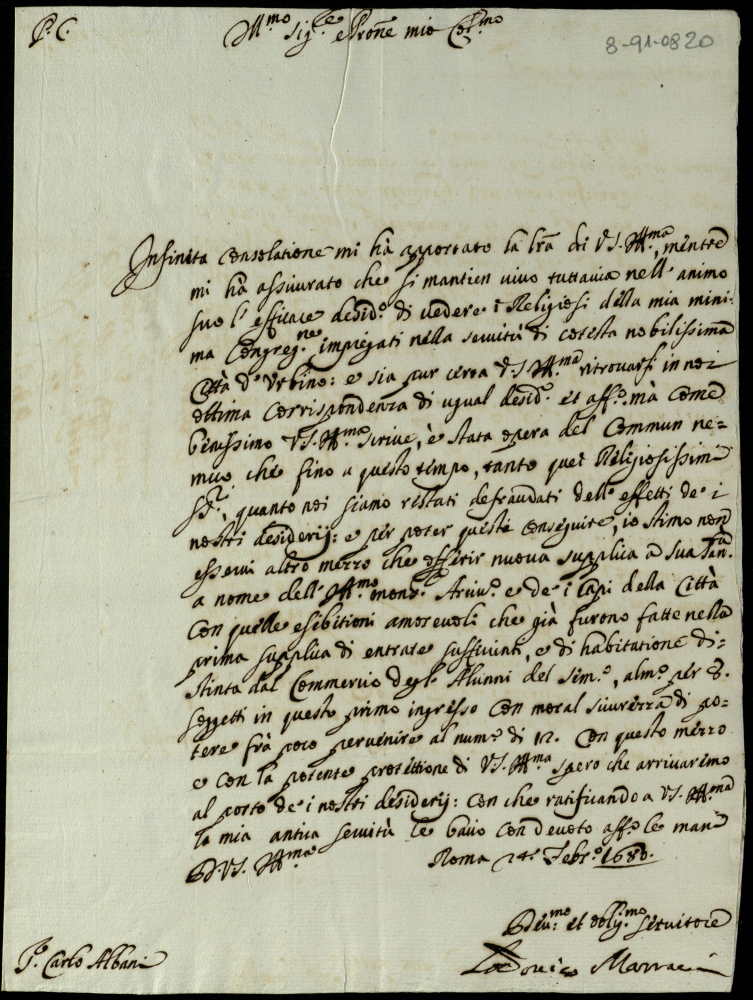 P. C.
Ill.mo Sig.re e Prone mio Col.mo
8-91-0820
Infinita consolatione mi hà apportato la lra di V.S. Ill.ma, mentre
mi hà assicurato che si mantien vivo tuttavia nell'animo
suo l'efficace desid.o di vedere i Religiosi della mia mini-
ma Congreg.ne impiegati nella servitù di cotesta nobilissima
Città d'Urbino: e sia pur certa V.S. Ill.ma ritrovarsi in noi
ottima corrispondenza di ugual desid.o et aff.o mà come
benissimo V.S. Ill.ma scrive, è stata opera del Commun ne=
mico, che fino a questo tempo, tanto quei Religiosissimi
SS.ri, quanto noi siamo restati defraudati dell'effetti de i
nostri desiderij: e per poter questi conseguire, io stimo non
esservi altro mezzo che offerir nuova supplica a Sua San.tà
a nome dell'Ill.mo Mons.r Arciv.o e de i capi della Città
con quelle esibitioni amorevoli che già furono fatte nella
prima supplica di entrate sufficienti, e di habitatione di=
stinta dal commercio degl'Alunni del Sem.o, alm.o per 8.
soggetti in questo primo ingresso con moral sicurezza di po=
tere frà poco pervenire al num.o di 12. Con questo mezzo
e con la potente protettione di V.S. Ill.ma spero che arrivaremo
al porto de i nostri desiderij: con che ratificando a V.S. Ill.ma
la mia antica servitù le bacio con devoto aff.o le mani
D. V.S. Ill.ma Roma 24 Febr.o 1680.
Devu.mo et oblig.mo servitore
Lodovico Marracci
S.r Carlo Albani